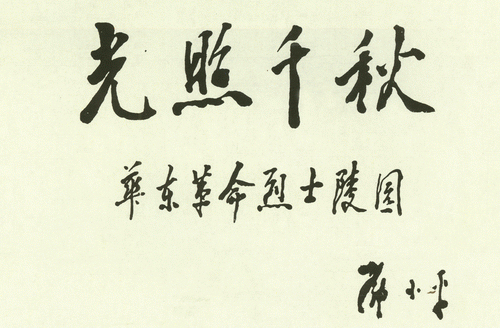 光照千秋
華东革命烈士陵园
邓小平